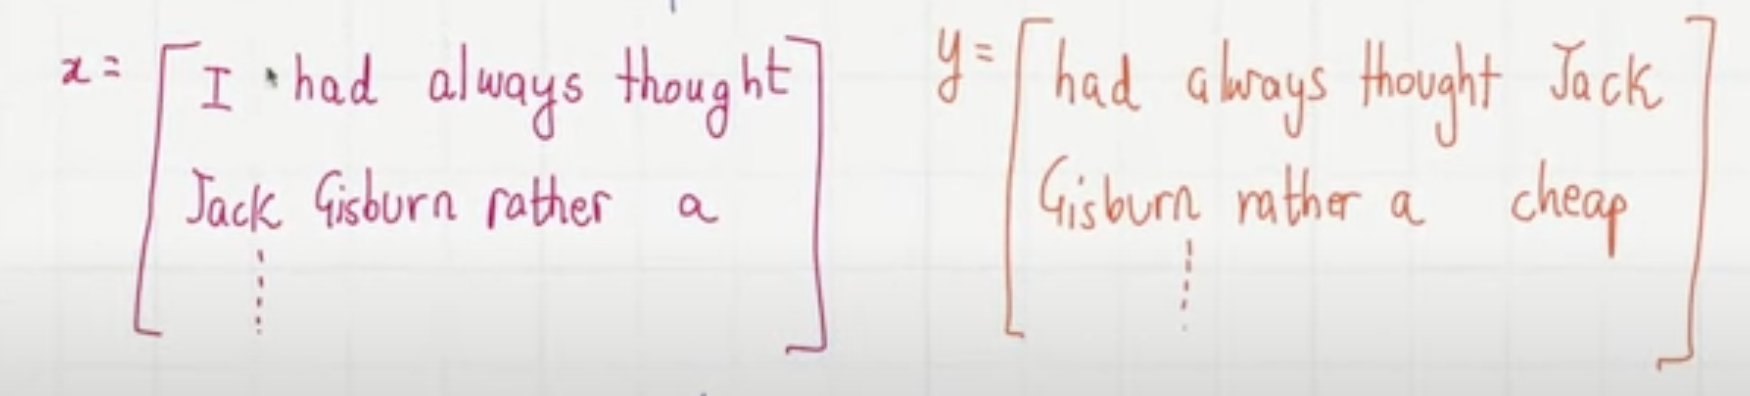 x = [ I had always thought ]
Jack Gisburn rather a
y = [ had always thought Jack ]
Gisburn rather a cheap